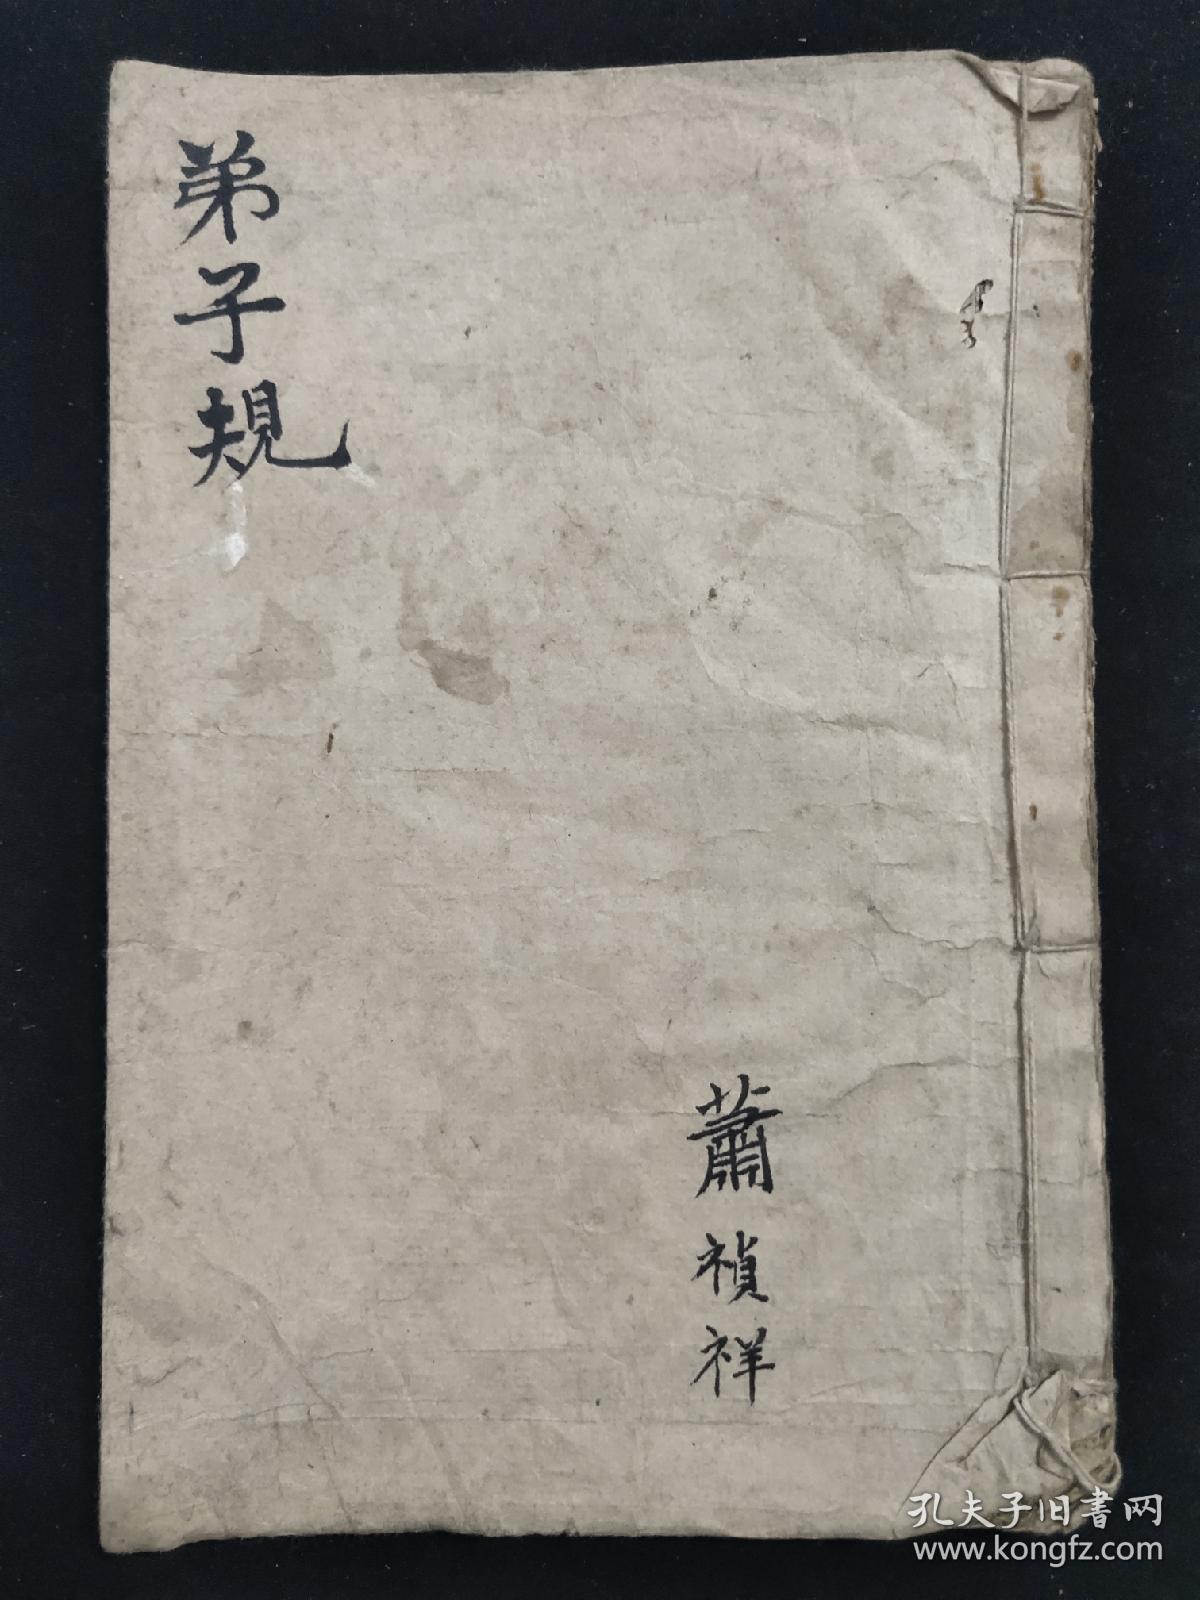 弟子規
蕭禎祥
孔夫子旧書网
www.kongfz.com